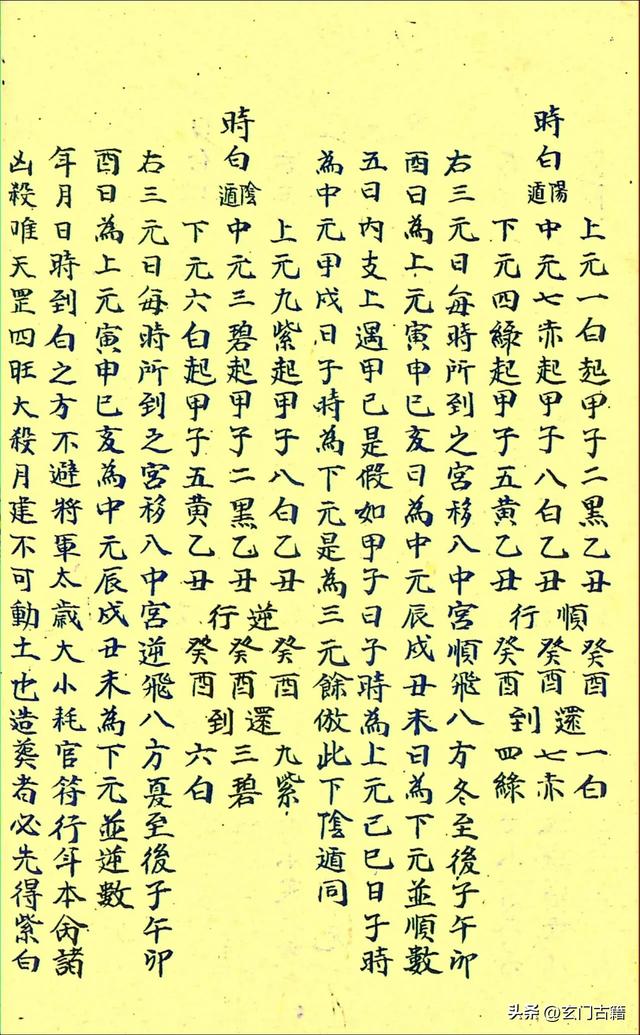 上元一白起甲子二黑乙丑癸酉一白
時白陽遁中元七赤起甲子八白乙丑順行癸酉還到七赤
下元四綠起甲子五黃乙丑癸酉四綠
右三元日每時所到之宮移入中宮順飛八方冬至後子午卯
酉日為上元寅申巳亥日為中元辰戌丑未日為下元並順數
五日內支上遇甲己是假如甲子日子時為上元己巳日子時
為中元甲戌日子時為下元是為三元餘倣此下陰遁同
上元九紫起甲子八白乙丑癸酉九紫
時白陰遁中元三碧起甲子二黑乙丑逆行癸酉還到三碧
下元六白起甲子五黃乙丑癸酉六白
右三元日每時所到之宮移入中宮逆飛八方夏至後子午卯
酉日為上元寅申巳亥為中元辰戌丑未為下元並逆數
年月日時到白之方不避將軍太歲大小耗官符行年本命諸
凶殺唯天罡四旺大殺月建不可動土也造葬者必先得紫白
头条 @玄门古籍